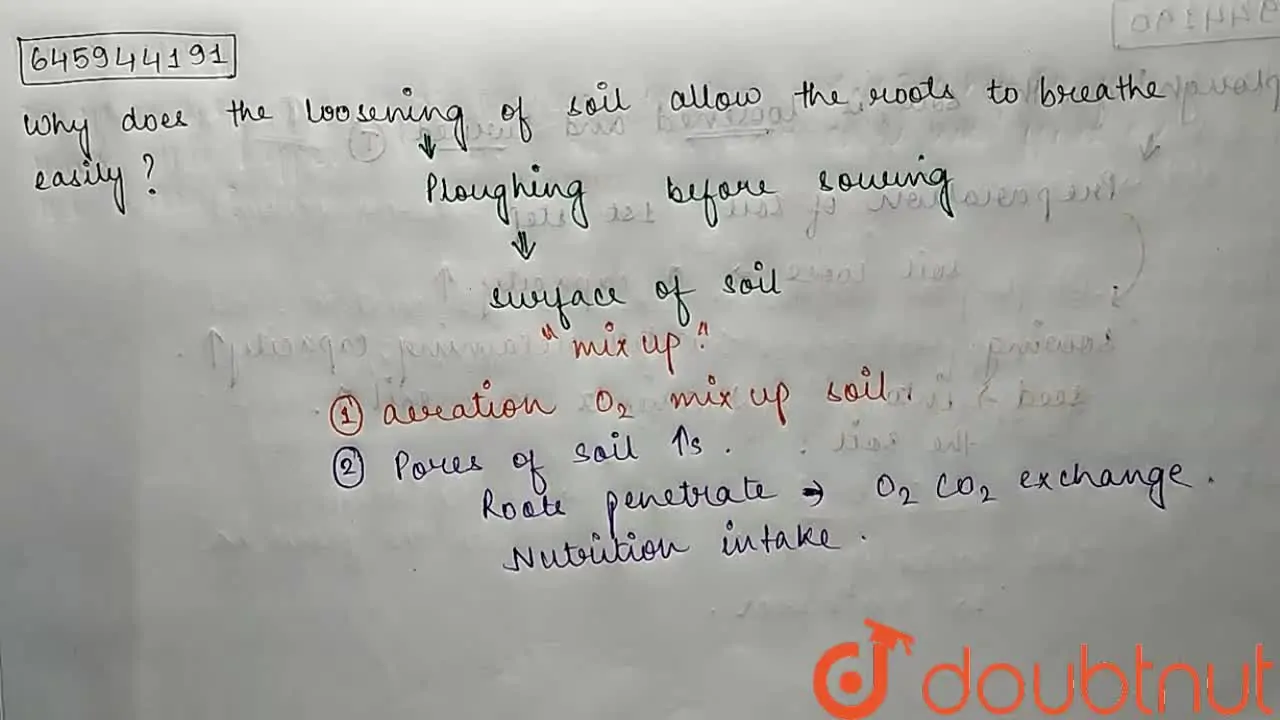 645944191
Why does the loosening of soil allow the roots to breathe
easily?
Ploughing before sowing
surface of soil
"mix up"
① aeration O₂ mix up soil.
② Pores of soil ↑s.
Roots penetrate → O₂ CO₂ exchange.
Nutrition intake.
doubtnut